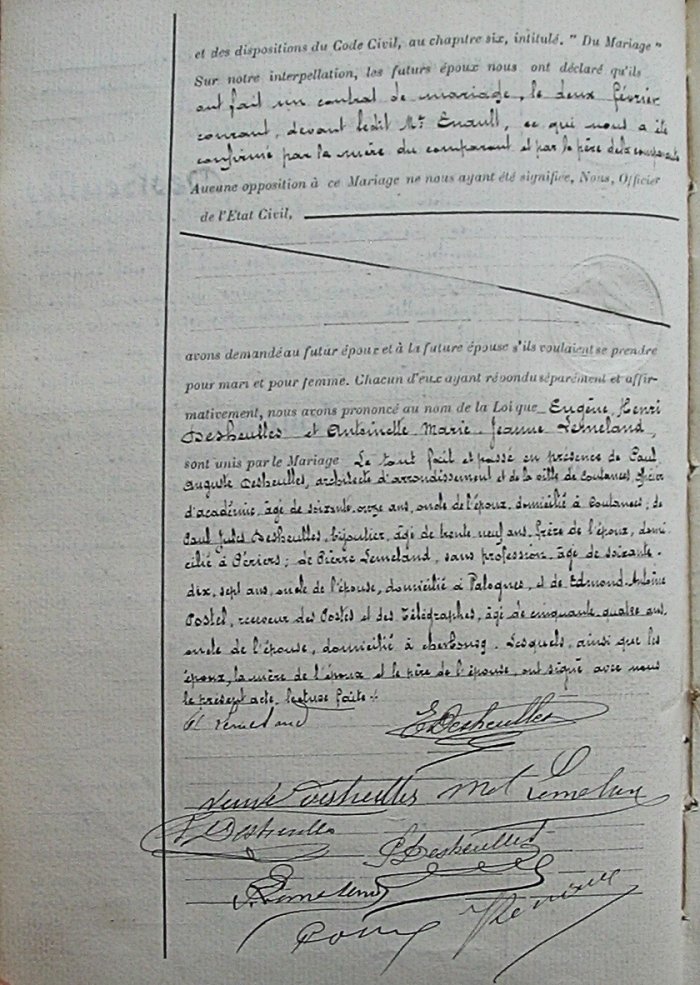 et des dispositions du Code Civil, au chapitre six, intitulé. " Du Mariage "
Sur notre interpellation, les futurs époux nous ont déclaré qu'ils
ont fait un contrat de mariage, le deux février
courant, devant ledit Me Enault, ce qui nous a été
confirmé par la mère du comparant et par le père de la comparante
Aucune opposition à ce Mariage ne nous ayant été signifiée, Nous, Officier
de l'Etat Civil,
avons demandé au futur époux et à la future épouse s'ils voulaient se prendre
pour mari et pour femme. Chacun d'eux ayant répondu séparément et affir-
mativement, nous avons prononcé au nom de la Loi que Eugène, Henri
Desheulles et Antoinette Marie Jeanne Lemeland,
sont unis par le Mariage Le tout fait et passé en présence de Paul
Auguste Desheulles, architecte d'arrondissement et de la ville de Coutances, officier
d'académie, âgé de soixante-onze ans, oncle de l'époux, domicilié à Coutances; de
Paul Jules Desheulles, bijoutier, âgé de trente neuf ans, frère de l'époux, domi
cilié à Périers; de Pierre Lemeland, sans profession, âgé de soixante-
dix-sept ans, oncle de l'épouse, domicilié à Valognes, et de Edmond-Antoine
Postel, receveur des Postes et des Télégraphes, âgé de cinquante-quatre ans,
oncle de l'épouse, domicilié à Cherbourg. Lesquels, ainsi que les
époux, la mère de l'époux, et le père de l'épouse, ont signé avec nous
le présent acte, lecture faite.
Lemeland
E Desheulles
veuve Desheulles
Lemeland
Desheulles
P. Desheulles
P. Lemeland